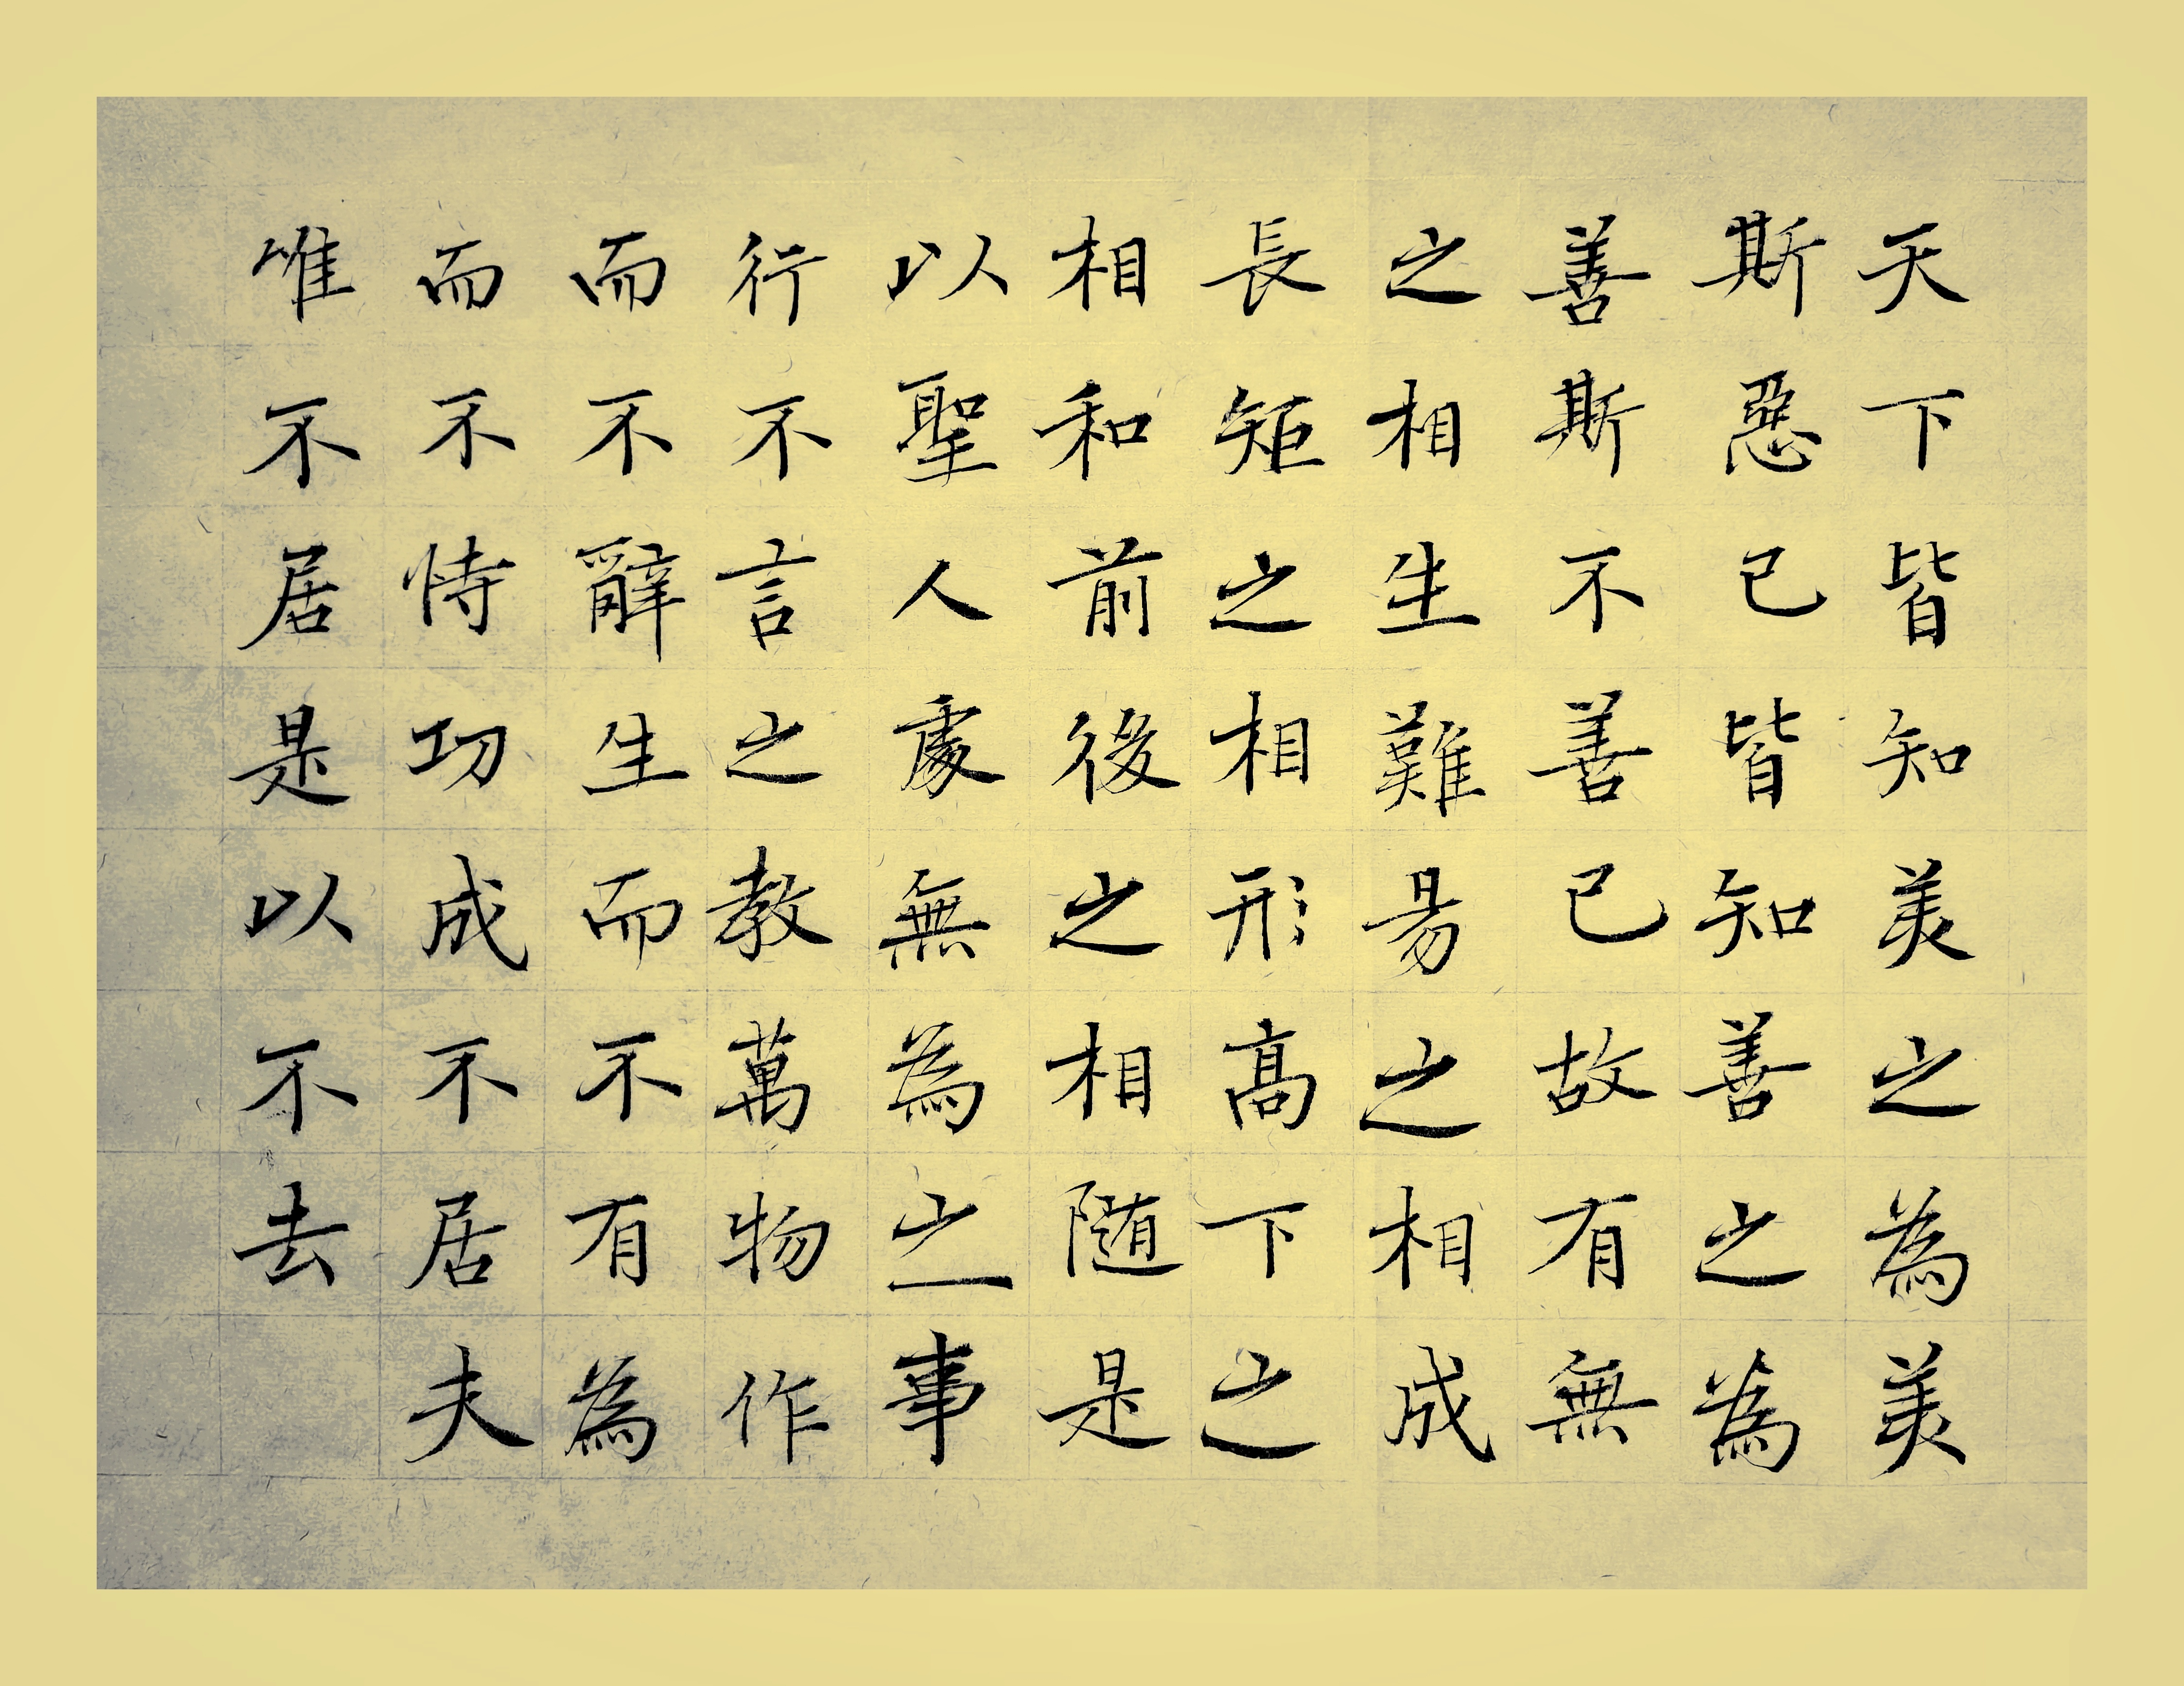 天下皆知美之為美
斯惡已皆知善之為
善斯不善已故有無
之相生難易之相成
長矩之相形髙下之
相和前後之相随是
以聖人處無為之事
行不言之教萬物作
而不辭生而不有為
而不恃功成不居夫
唯不居是以不去